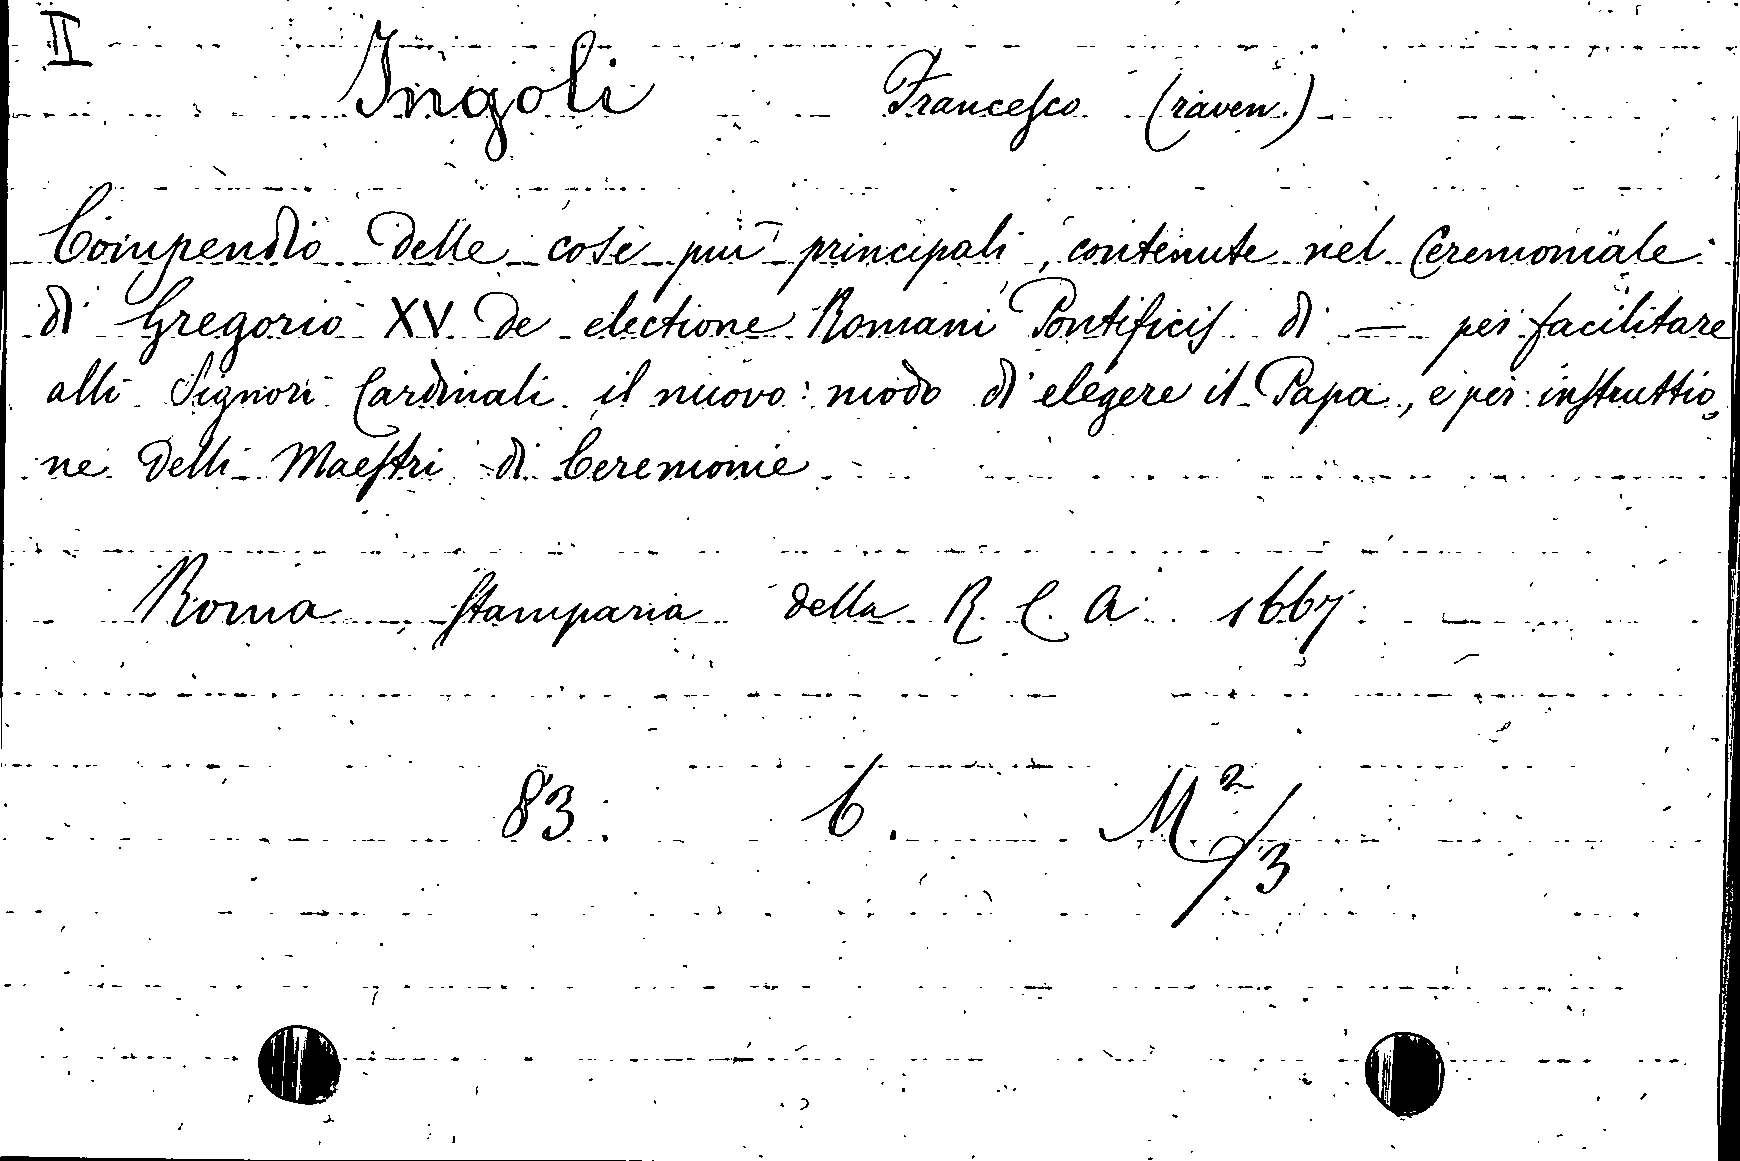 II
Ingoli Francesco (raven.)
Compendio delle cose più principali, contenute nel Ceremoniale
di Gregorio XV de electione Romani Pontificis di — per facilitare
alli Signori Cardinali il nuovo modo di elegere il Papa, e per instruttio-
ne delli Maestri di Ceremonie
Roma, stamparia della R. C. A. 1667.
83. 6. M 2/3